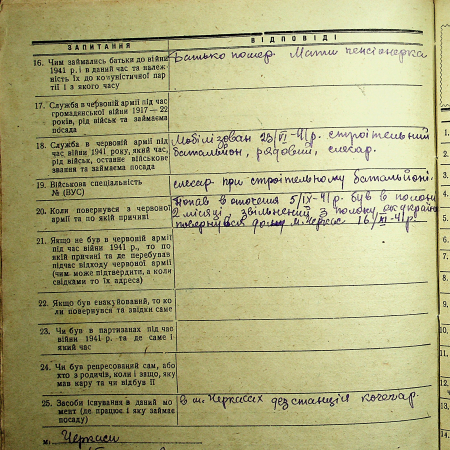 ЗАПИТАННЯ
ВІДПОВІДІ
16. Чим займались батьки до війни
1941 р. і в даний час та належ-
ність їх до комуністичної пар-
тії і з якого часу
Батько помер Мати пенсіонерка
17. Служба в червоній армії під час
громадянської війни 1917—22
років, рід військ та займаєма
посада
18. Служба в червоній армії під
час війни 1941 року, який час,
рід військ, останнє військове
звання та займаєма посада
Мобілізован 23/VI-41р. строітельний
батальйон, рядовий, слесар.
19. Військова спеціальність
№ (ВУС)
слесар при строітельному батальйоні.
20. Коли повернувся з червоної
армії та по якій причині
Попав в оточення 5/IX-41р був в полоні
2 місяці звільнений з полону
повернувся дому м. Черкас 16/XI-41р
21. Якщо не був в червоній армії
під час війни 1941 р., то по
якій причині та де перебував
підчас відходу червоної армії
(чим може підтвердити, а коли
свідками то їх адреса)
22. Якщо був евакуйований, то ко
ли повернувся та звідки саме
23. Чи був в партизанах під час
війни 1941 р. та де саме і
який час
24. Чи був репресований сам, або
хто з родичів, коли і защо, яку
мав кару та чи відбув її
25. Засоби існування в даний мо
мент (де працює і яку займає
посаду)
в м. Черкассах станція кочегар.
м. Черкаси
1.
2.
3.
4.
5.
6.
7.
8.
9.
10.
11.
12.
13.
14.